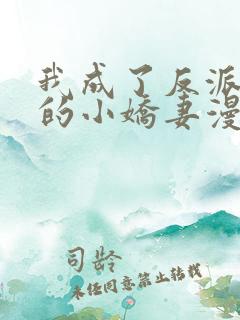 我成了反派
的小娇妻漫
司龄
未经同意禁止转载